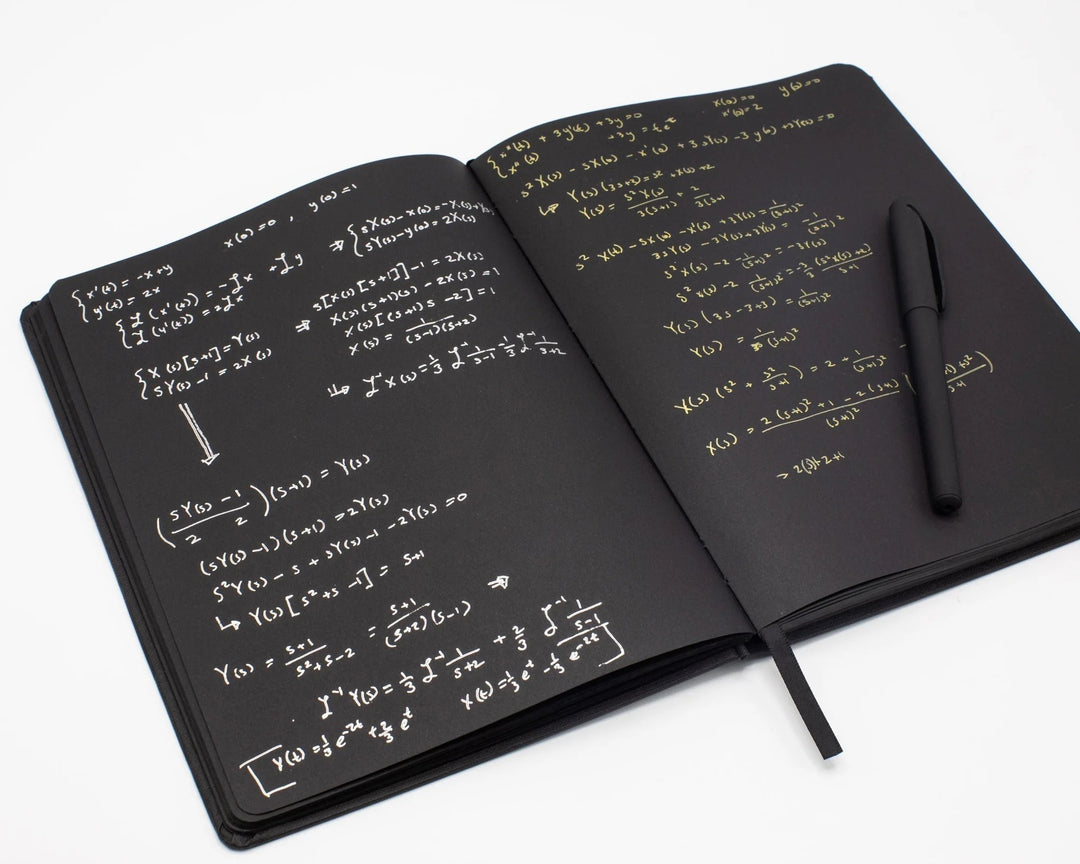 x(0)=0 , y(0)=1
{ x'(t) = -x+y
{ y'(t) = 2x
{ ℒ(x'(t)) = -ℒx + ℒy
{ ℒ(y'(t)) = 2ℒx
{ X(s)[s+1] = Y(s)
{ sY(s) - 1 = 2X(s)
⇒ { sX(s) - x(0) = -X(s) + Y(s)
{ sY(s) - y(0) = 2X(s)
⇒ s[X(s)[s+1]] - 1 = 2X(s)
X(s)(s+1)(s) - 2X(s) = 1
X(s)[(s+1)s - 2] = 1
X(s) = 1/((s-1)(s+2))
ℒ⁻¹ X(s) = 1/3 ℒ⁻¹ 1/(s-1) - 1/3 ℒ⁻¹ 1/(s+2)
((sY(s) - 1)/2 2)(s+1) = Y(s)
(sY(s) - 1)(s+1) = 2Y(s)
s²Y(s) - s + sY(s) - 1 - 2Y(s) = 0
↳ Y(s)[s² + s - 1] = s+1
Y(s) = (s+1)/(s²+s-2) = (s+1)/((s+2)(s-1)) ⇒
ℒ⁻¹ Y(s) = 1/3 ℒ⁻¹ 1/(s+2) + 2/3 ℒ⁻¹ 1/(s-1)
Y(t) = 1/3 e^-2t + 2/3 e^t
X(t) = 1/3 e^t - 1/3 e^-2t
x(0)=0 y(0)=0
x'(0)=2
{ x''(t) + 3y'(t) + 3y = 0
{ x''(t) +3y = te^t
s² X(s) - sX(0) - x'(0) + 3sY(s) - 3y(0) + 3Y(s) = 0
↳ Y(s)(3s+3) = s² + X(s) + 2
Y(s) = s²X(s)/3(s+1) + 2/3(s+1
s² X(s) - sX(0) - x'(0) + 3Y(s) = 1/(s+1)²
3sY(s) - 3Y(s) + 3Y(s) = -1/(s+1)²
s² X(s) - 2 - 1/(s+1)² = -3Y(s)
s² X(s) - 2 1/(s+1)² = -3/3 (s²X(s)+2)/(s+1)
Y(s)(3s - 3 + 3) = 1/(s+1)²
Y(s) = 1/(s+1)²
X(s)(s² + s²/(s+1)) = 2 + 1/(s+1)²
X(s) = (2(s+1)² + 1 - 2(s+1))/(s+1)²
> 2(s)+2+1